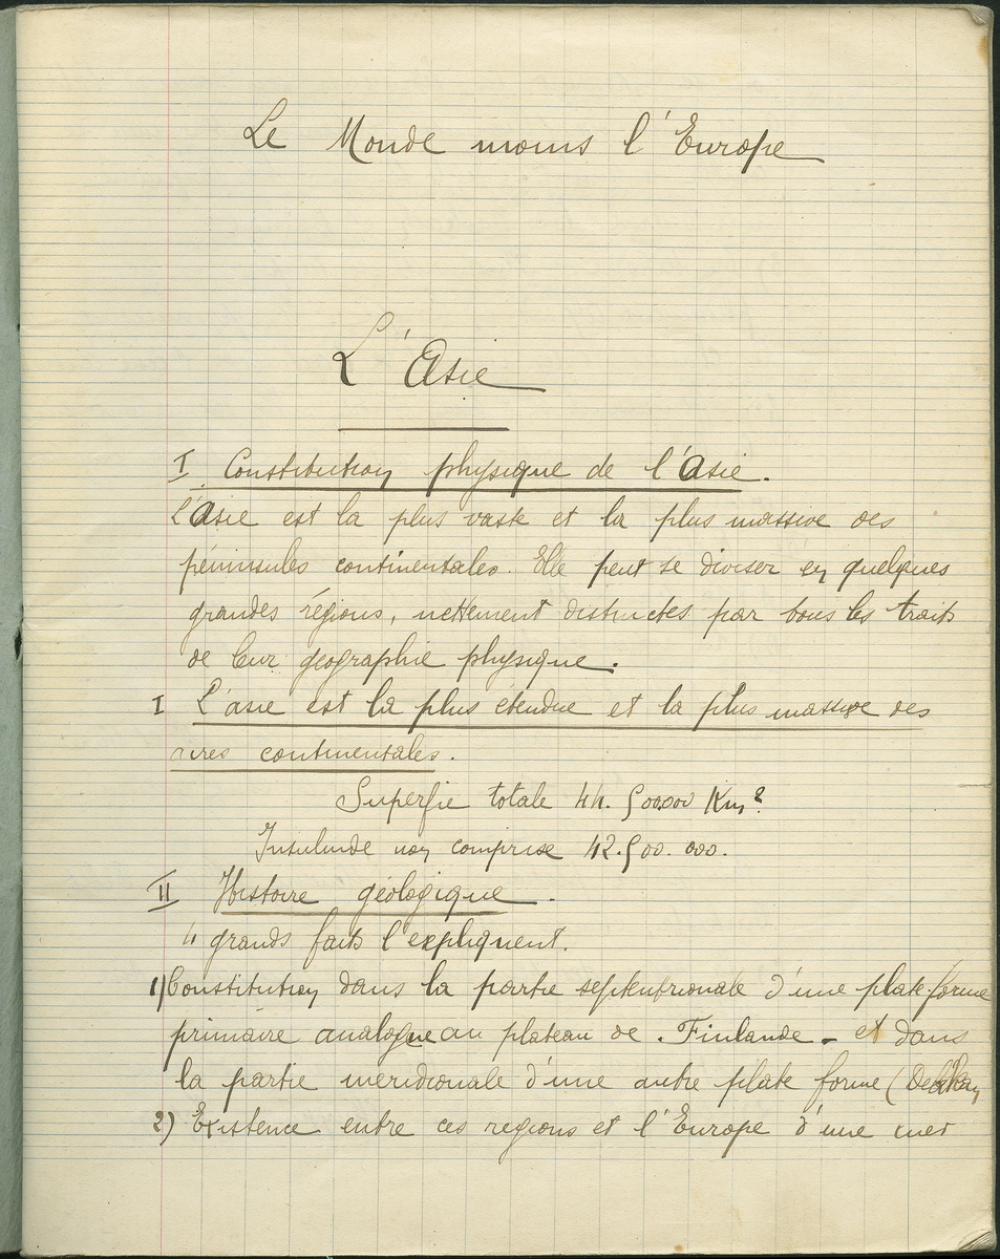 Le Monde moins l'Europe
L'Asie
I Constitution physique de l'Asie.
L'Asie est la plus vaste et la plus massive des
péninsules continentales. Elle peut se diviser en quelques
grandes régions, nettement distinctes par tous les traits
de leur géographie physique.
I L'asie est la plus étendue et la plus massive des
aires continentales.
Superfie totale 44.500.000 Km²
Insulinde non comprise 42.500.000.
II Histoire géologique.
4 grands faits l'expliquent.
1) Constitution dans la partie septentrionale d'une plate-forme
primaire analogue au plateau de Finlande - et dans
la partie méridionale d'une autre plate forme (Dekkan
2) Existence entre ces regions et l'Europe d'une mer